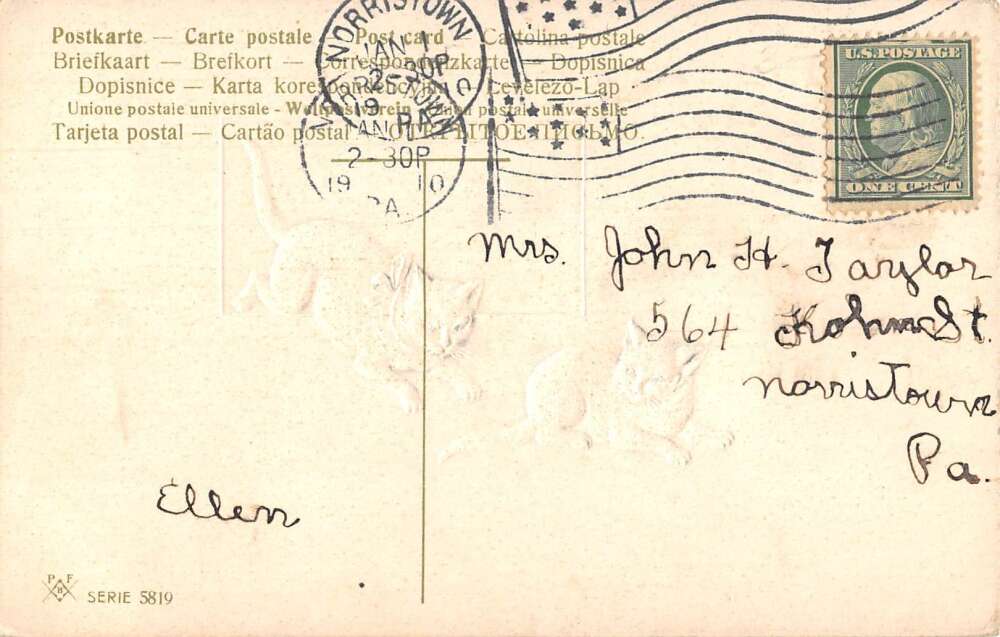 Postkarte — Carte postale — Post card — Cartolina postale
Briefkaart — Brefkort — Correspondenzkarte — Dopisnica
Dopisnice — Karta korespondencyjna — Levelező-Lap
Unione postale universale - Weltpostverein - Union postale universelle
Tarjeta postal — Cartão postal — ОТКРЫТОЕ ПИСЬМО.
NORRISTOWN
JAN 1
2-30P
19 10
PA.
JAN
2-30P
19 10
PA.
U.S. POSTAGE
ONE CENT
Mrs. John H. Taylor
564 Kohn St.
Norristown
Pa.
Ellen
P F
B
SERIE 5819